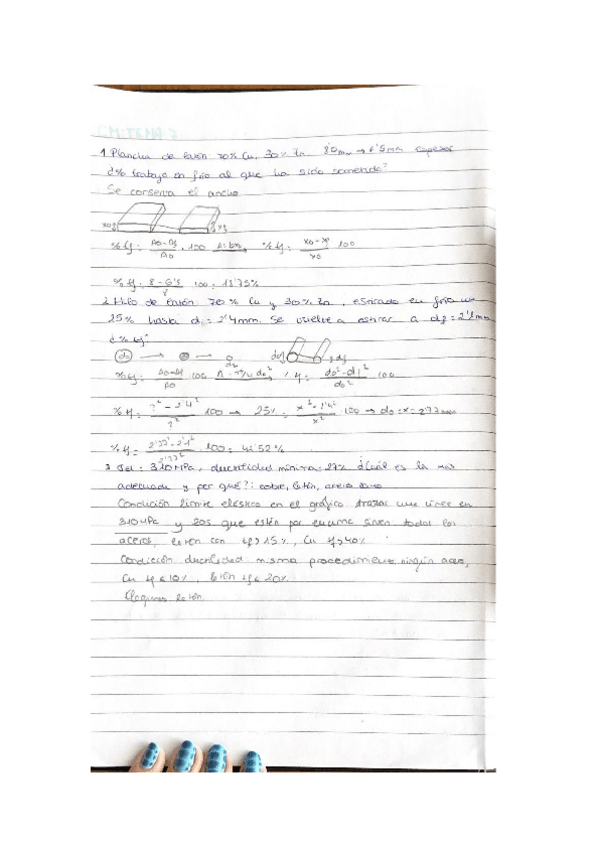 1. Plancha de latón 70% Cu, 30% Zn 8'0mm → 6'5mm espesor
d% trabajo en frío al que ha sido sometido?
Se conserva el ancho
x0 xf
% ϕ = (A0 - Af) / A0 · 100 → % ϕ = (x0 - xf) / x0 · 100
% ϕ = (8 - 6'5) / 8 · 100 = 18'75%
2. Hilo de latón 70% Cu y 30% Zn, estirado en frío un
25% hasta d1 = 2'4mm. Se vuelve a estirar a df =
d% ϕ?
d0 → →
% ϕ = (A0 - Af) / A0 · 100 % ϕ = (d0² - d1²) / d0² · 100
% ϕ = (?² - 2'4²) / ?² 100 → 25% = (x² - 2'4²) / x² · 100 → d0 = x = 2'77mm
% ϕ = 100 = 42'52%
3 = 310MPa, ductilidad mínima: 27% ¿Cuál es la más
adecuada y por qué?: cobre, latón, acero
Condición límite elástico en el gráfico trazar una línea en
310MPa y los que estén por encima sirven todos los
aceros, latón con ϕ > 15%, Cu ϕ > 40%
Condición ductilidad mismo procedimiento ningún acero,
Cu ϕ < 10%, latón ϕ < 20%
latón